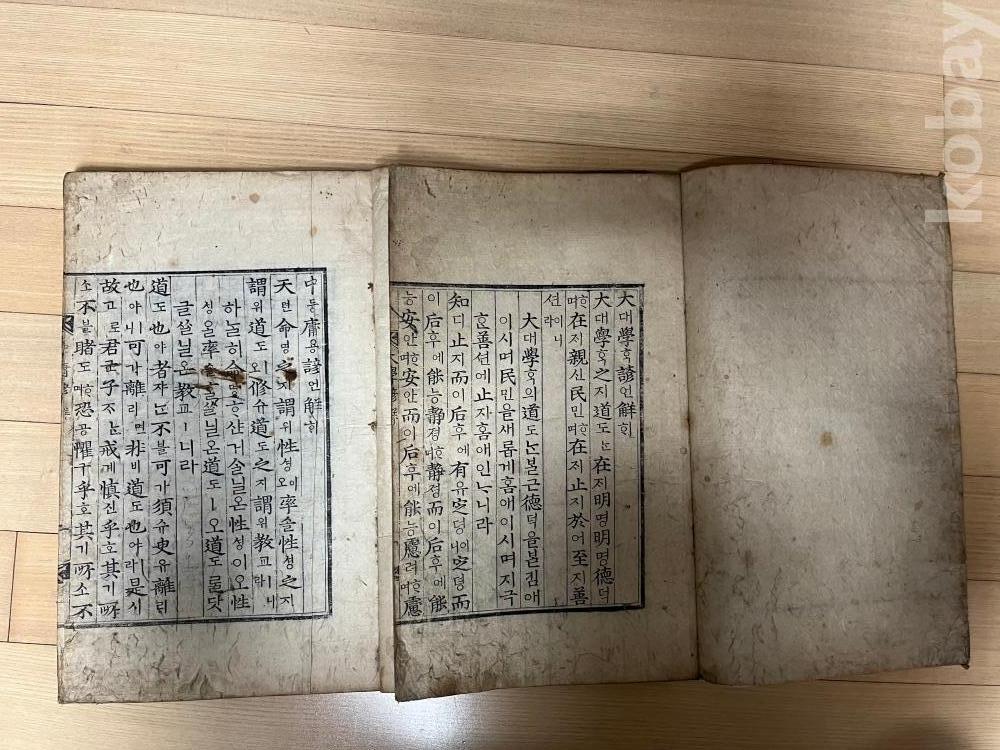 大대學ᄒᆞᆨ諺언解ᄒᆡ
大대學ᄒᆞᆨ之지道도ᄂᆞᆫ在ᄌᆡ明명明명德덕
ᄒᆞ며在ᄌᆡ親신民민ᄒᆞ며在ᄌᆡ止지於어至지善
션이니라
大대學ᄒᆞᆨ의道도ᄂᆞᆫᄇᆞᆯ근德덕을ᄇᆞᆯ킴애
이시며民민을새롭게홈애이시며지극
ᄒᆞᆫ善션에止지홈애인ᄂᆞ니라
知디止지而이后후에有유定뎡이니定뎡而
이后후에能능靜졍ᄒᆞ며靜졍而이后후에能
능安안ᄒᆞ며安안而이后후에能능慮려ᄒᆞ며慮
中듕庸용諺언解ᄒᆡ
天텬命명之지謂위性셩이오率솔性셩之지
謂위道도ㅣ오修슈道도之지謂위教교ㅣ니라
하ᄂᆞᆯ히命명ᄒᆞ샨거ᄉᆞᆯ닐온性셩이오性
셩을率솔ᄒᆞᆯᄊᆞᆯ닐온道도ㅣ오道도ᄅᆞᆯ닷
글ᄊᆞᆯ닐온教교ㅣ니라
道도也야者쟈ᄂᆞᆫ不블可가須슈臾유離리
也야ㅣ니可가離리면非비道도也야ㅣ라是시
故고로君군子ᄌᆞᄂᆞᆫ戒계慎신乎호其기所
소不블睹도ᄒᆞ며恐공懼구乎호其기所소不
kobay